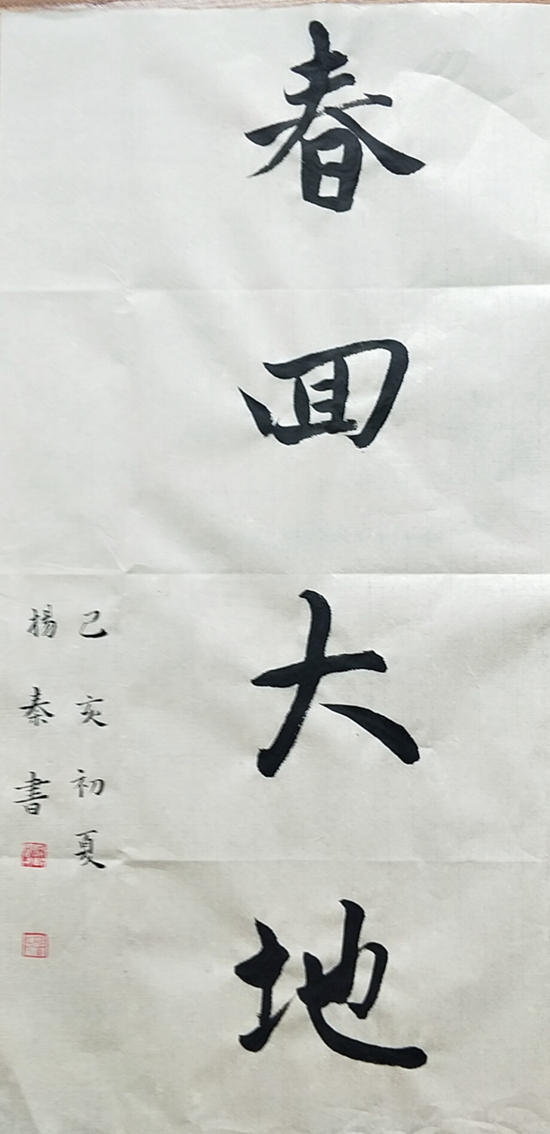 春回大地
己亥初夏
杨秦書